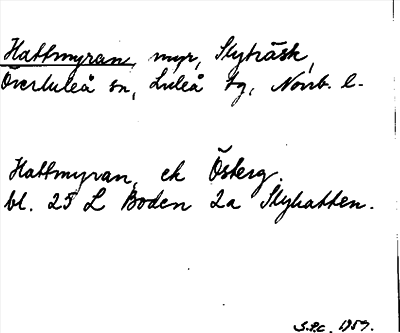 Hattmyran, myr, Slyträsk,
Överluleå sn, Luleå tg, Norrb. l.
Hattmyran, ek Österg.
bl. 25 L Boden 2a Slyhatten.
S.P.C. 1959.